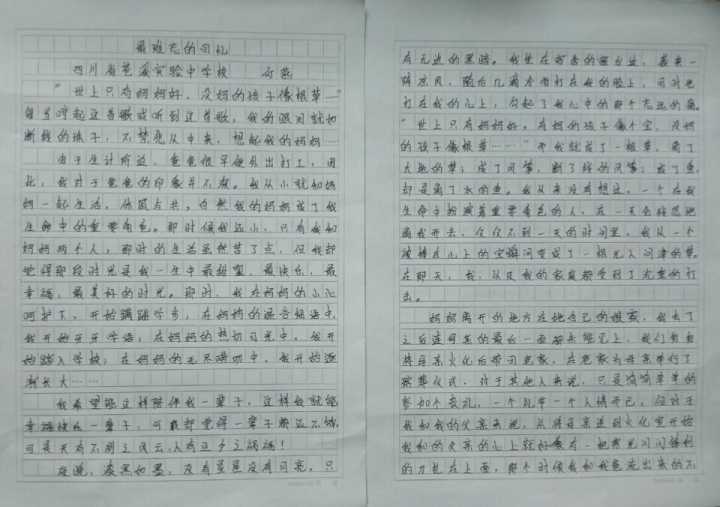 最难忘的回忆
四川省苍溪实验中学校
"世上只有妈妈好，没妈的孩子像根草…"
每当哼起这首歌或听到这首歌，我的眼泪就如
断线的珠子，不禁悲从中来，想起我的妈妈…
由于生计所迫，爸爸很早便外出打工，因
此，我对于爸爸的印象并不深。我从小就和妈
妈一起生活，休戚与共，自然我的妈妈成了我
生命中的重要角色。那时候我还小，只有我和
妈妈两个人，那时的生活虽然苦了点，但我却
觉得那段时光是我一生中最甜蜜、最快乐、最
幸福、最美好的时光。那时，我在妈妈的小心
呵护下，开始蹒跚学步；在妈妈的混合语中，
我开始牙牙学语；在妈妈的热切目光中，我开
始踏入学校；在妈妈的无尽唠叨中，我开始逐
渐长大……
我希望能这样陪伴我一辈子，这样就能
幸福快乐一辈子，可我却觉得一辈子都还不够，
可是天有不测之风云，人有旦夕之祸福！
夜晚，漆黑如墨，没有星星没有月亮，只
有无边的黑暗。我坐在宿舍的窗台边，袭来一
阵凉风，随后几滴水滴打在我的脸上，同时也
打在我的心上，勾起了我心中的那个无边的痛。
"世上只有妈妈好，有妈的孩子像个宝，没妈
的孩子像根草……"而我就成了一根草，离了
大地的草；成了风筝，断了线的风筝；成了鱼，
却是离了水的鱼。我从来没有想过，一个在我
生命中扮演着重要角色的人，在一天会转然地
离我开去，仅仅不到一天的时间里，我从一个
被捧在心上的宝瞬间变成了一根无人问津的草。
在那天，我，以及我的家庭都受到了沉重的打
击。
妈妈离开的地方在她自己的娘家，我去了
之后连母亲的最后一面都未能见上，我们匆匆
将母亲火化后带回老家，在老家为母亲举行了
殡葬仪式，对于其他人来说，只是简简单单的
参加个丧礼，一个礼节一个人情而已，但对于
我和我的父亲来说，从将母亲送到火化室开始
我和我的父亲的心上就好像有一把寒光闪闪锋利
的刀扎在上面，那个时候我和我爸流出来的不